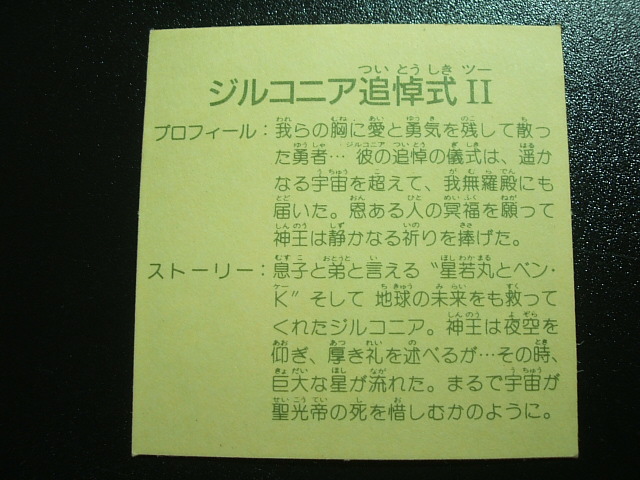 ジルコニア追悼式II
プロフィール：我らの胸に愛と勇気を残して散っ
た勇者… 彼の追悼の儀式は、遥か
なる宇宙を超えて、我無羅殿にも
届いた。恩ある人の冥福を願って
神王は静かなる祈りを捧げた。
ストーリー：息子と弟と言える〝星若丸とベン・
K〟そして 地球の未来をも救って
くれたジルコニア。神王は夜空を
仰ぎ、厚き礼を述べるが…その時、
巨大な星が流れた。まるで宇宙が
聖光帝の死を惜しむかのように。